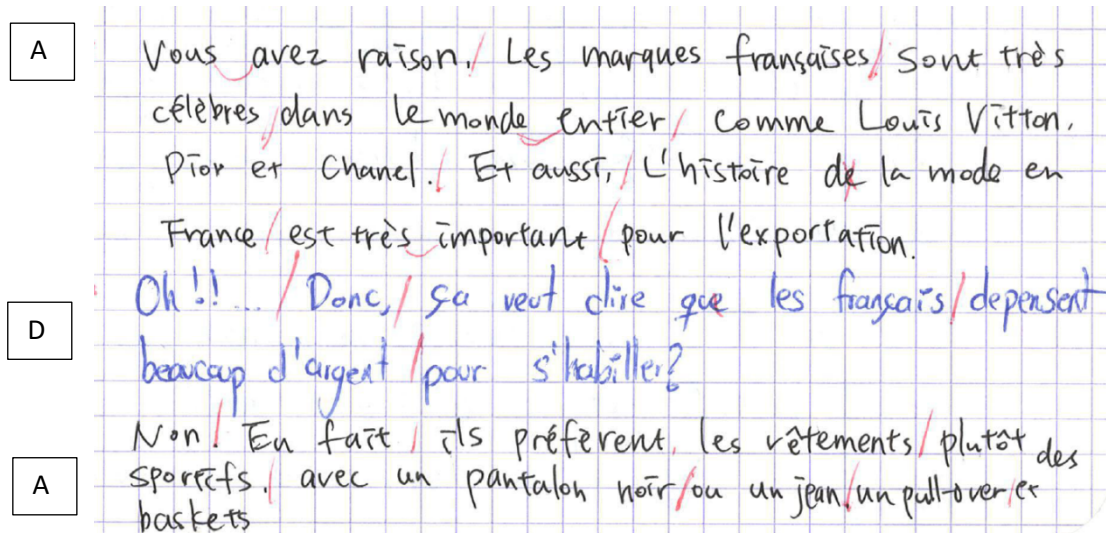 A
Vous avez raison. Les marques françaises sont très
célèbres dans le monde entier, comme Louis Vitton,
Dior et Chanel. Et aussi, L'histoire de la mode en
France est très important pour l'exportation.
Oh!!... Donc, ça veut dire que les français depensent
D
beaucoup d'argent pour s'habiller?
Non! En fait, ils préfèrent, les vêtements plutôt des
A
sportifs, avec un pantalon noir ou un jean, un pull-over et
baskets